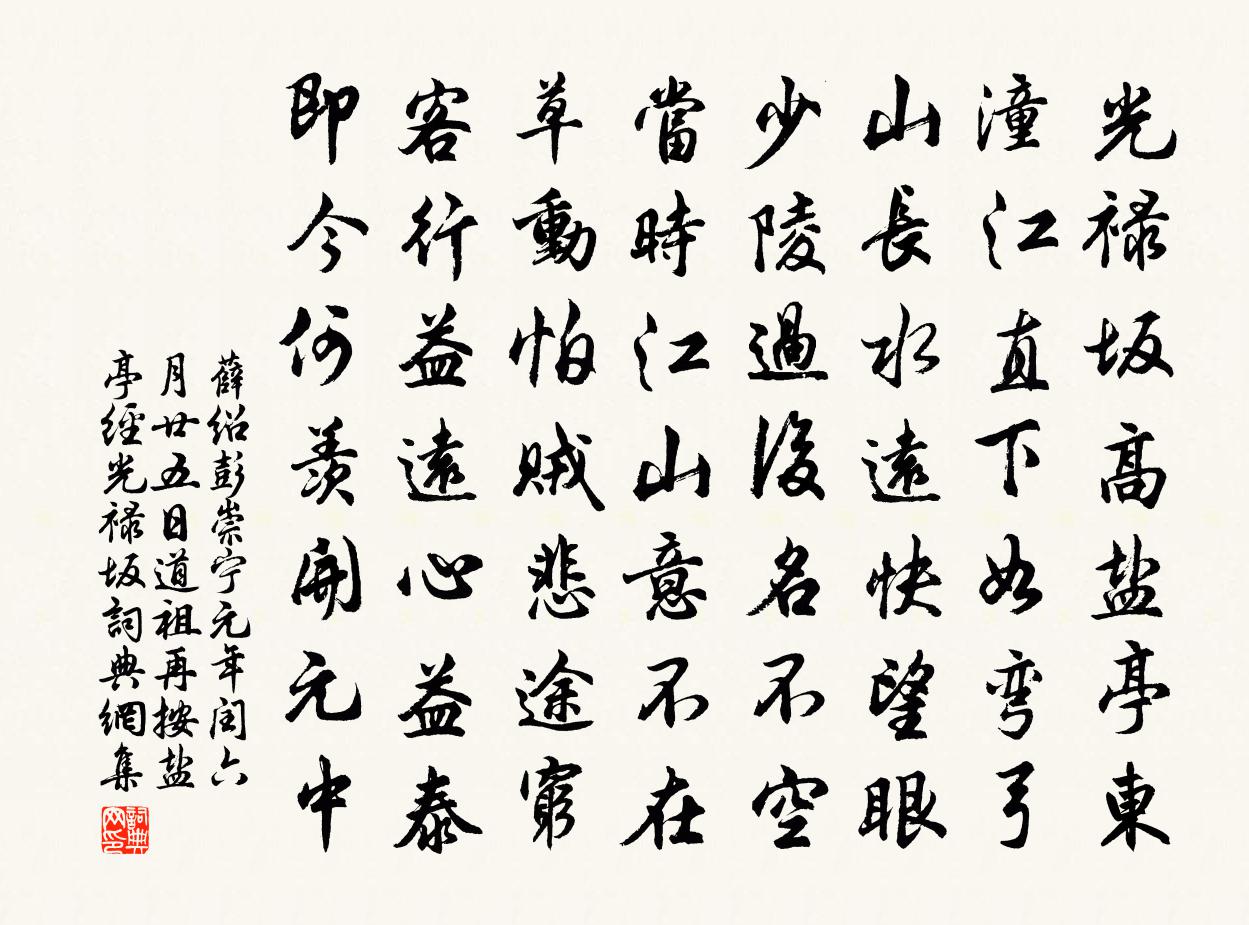 光禄坂高盐亭東
潼江直下如弯弓
山長水遠快望眼
少陵過後名不空
當時江山意不在
草動怕賊悲途窮
客行益遠心益泰
即今何羨開元中
薛绍彭崇宁元年闰六
月廿五日道祖再按盐
亭經光禄坂詞典網集
詞典
网印